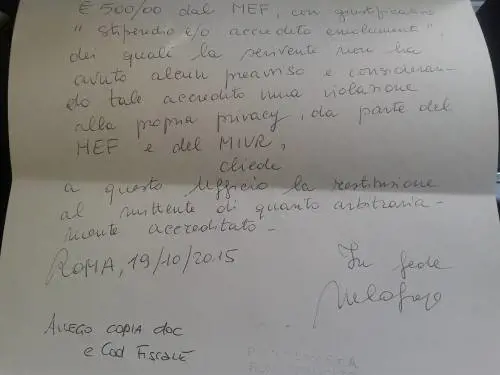 € 500/00 dal MEF, con giustificativo
"stipendio e/o accredito emolumenti",
dei quali la scrivente non ha
avuto alcun preavviso e consideran-
do tale accredito una violazione
alla propria privacy, da parte del
MEF e del MIUR,
chiede
a questo ufficio la restituzione
al mittente di quanto arbitraria-
mente accreditato -
ROMA, 19/10/2015
In fede
ALLEGO COPIA DOC
e Cod FISCALE